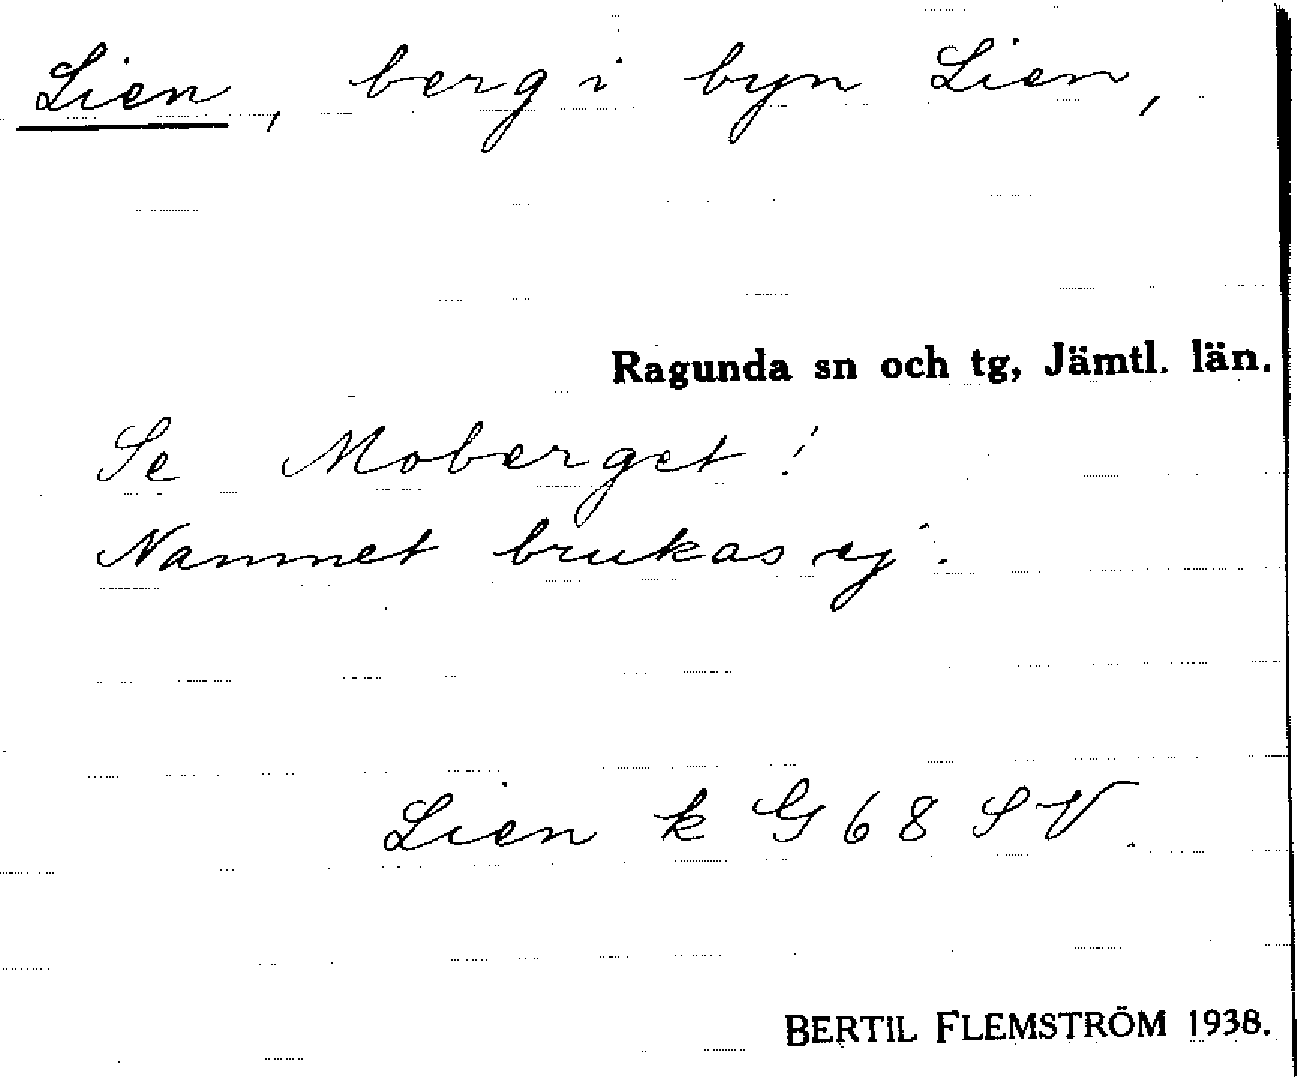 Lien, berg i byn Lien,
Ragunda sn och tg, Jämtl. län.
Se Moberget!
Namnet brukas ej.
Lien k G 68 SV.
BERTIL FLEMSTRÖM 1938.